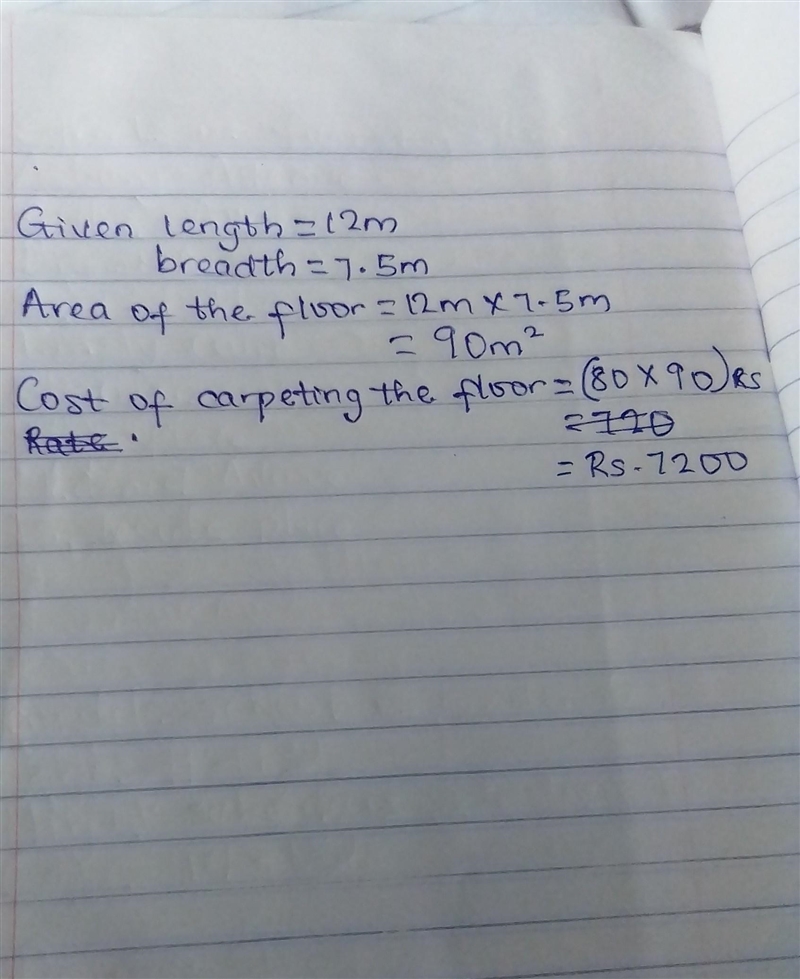 Given length = 12m
breadth = 7.5m
Area of the floor = 12m × 7.5m
= 90m²
Cost of carpeting the floor = (80 × 90) Rs
Rate.
= 720
= Rs. 7200